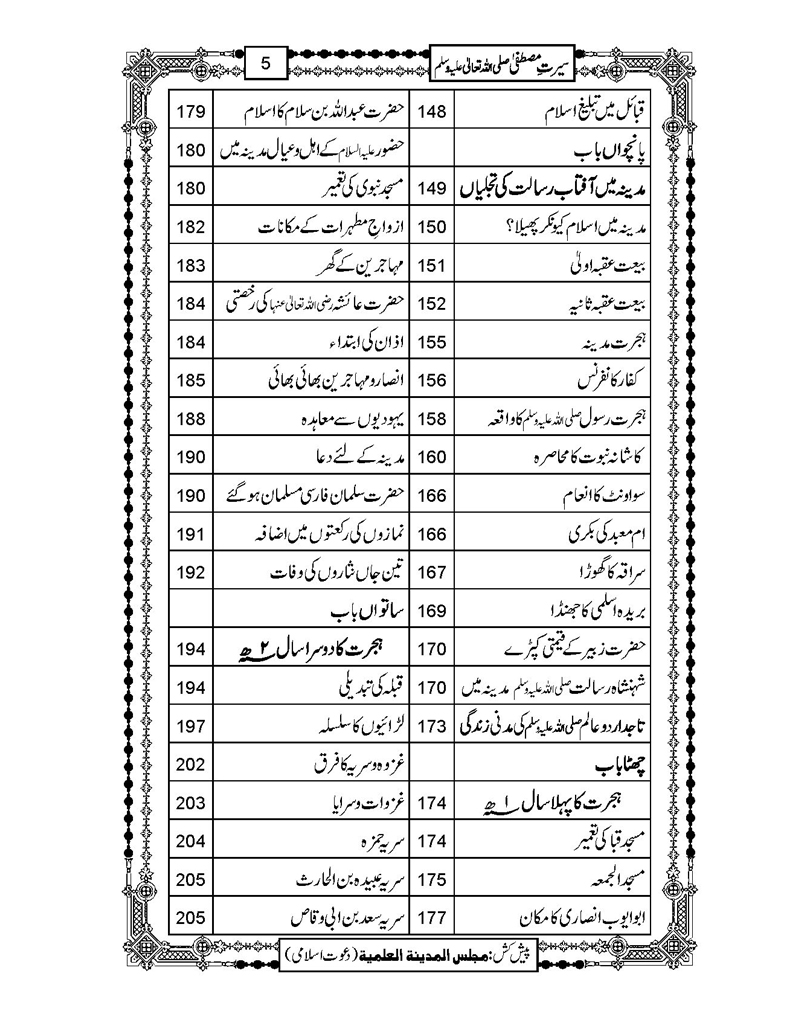 سیرتِ مصطفیٰ صلی اللہ تعالیٰ علیہ وسلم 5
قبائل میں تبلیغ اسلام 148
پانچواں باب
مدینہ میں آفتاب رسالت کی تجلیاں 149
مدینہ میں اسلام کیونکر پھیلا؟ 150
بیعت عقبہ اولیٰ 151
بیعت عقبہ ثانیہ 152
ہجرت مدینہ 155
کفار کانفرنس 156
ہجرت رسول صلی اللہ علیہ وسلم کا واقعہ 158
کاشانہ نبوت کا محاصرہ 160
سو اونٹ کا انعام 166
ام معبد کی بکری 166
سراقہ کا گھوڑا 167
بریدہ اسلمی کا جھنڈا 169
حضرت زبیر کے قیمتی کپڑے 170
شہنشاہ رسالت صلی اللہ علیہ وسلم مدینہ میں 170
تاجدار دو عالم صلی اللہ علیہ وسلم کی مدنی زندگی 173
چھٹا باب
ہجرت کا پہلا سال ۱ھ 174
مسجد قبا کی تعمیر 174
مسجد الجمعہ 175
ابو ایوب انصاری کا مکان 177
حضرت عبداللہ بن سلام کا اسلام 179
حضور علیہ السلام کے اہل و عیال مدینہ میں 180
مسجد نبوی کی تعمیر 180
ازواجِ مطہرات کے مکانات 182
مہاجرین کے گھر 183
حضرت عائشہ رضی اللہ تعالیٰ عنہا کی رخصتی 184
اذان کی ابتداء 184
انصار و مہاجرین بھائی بھائی 185
یہودیوں سے معاہدہ 188
مدینہ کے لئے دعا 190
حضرت سلمان فارسی مسلمان ہو گئے 190
نمازوں کی رکعتوں میں اضافہ 191
تین جاں نثاروں کی وفات 192
ساتواں باب
ہجرت کا دوسرا سال ۲ھ 194
قبلہ کی تبدیلی 194
لڑائیوں کا سلسلہ 197
غزوہ و سریہ کا فرق 202
غزوات و سرایا 203
سریہ حمزہ 204
سریہ عبیدہ بن الحارث 205
سریہ سعد بن ابی وقاص 205
پیش کش: مجلس المدینۃ العلمیۃ (دعوت اسلامی)